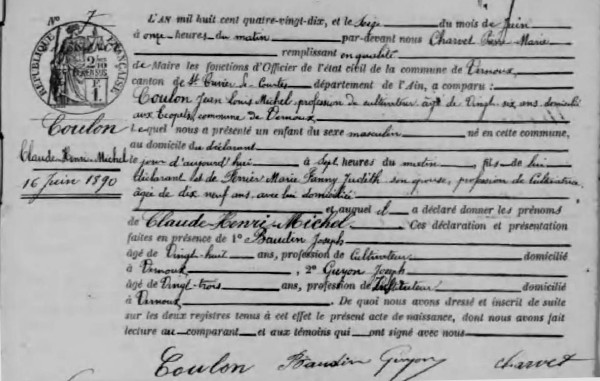 N° 7
RÉPUBLIQUE FRANÇAISE
Coulon
Claude Henri Michel
16 Juin 1890
L'AN mil huit cent quatre-vingt-dix, et le Seize du mois de Juin
à onze heures du matin par-devant nous Charvet Marie
remplissant en qualité
de Maire les fonctions d'Officier de l'état civil de la commune de Vernoux,
canton de St Trivier de Courtes département de l'Ain, a comparu :
Coulon Jean Louis Michel, profession de cultivateur âgé de Vingt six ans, domicilié
aux commune de Vernoux
Lequel nous a présenté un enfant du sexe masculin né en cette commune,
au domicile du déclarant
le jour d'aujourd'hui à Sept heures du matin, fils de lui
déclarant et de Marie Fanny Judith son épouse, profession de Cultivatrice
âgée de dix neuf ans, avec lui domiciliée
et auquel il a déclaré donner les prénoms
de Claude Henri Michel. Ces déclaration et présentation
faites en présence de 1° Baudin Joseph
âgé de Vingt-huit ans, profession de Cultivateur domicilié
à Vernoux, 2° Guyon Joseph
âgé de Vingt-trois ans, profession de Instituteur domicilié
à Vernoux. De quoi nous avons dressé et inscrit de suite
sur les deux registres tenus à cet effet le présent acte de naissance, dont nous avons fait
lecture au comparant et aux témoins qui ont signé avec nous
Coulon Baudin Guyon Charvet